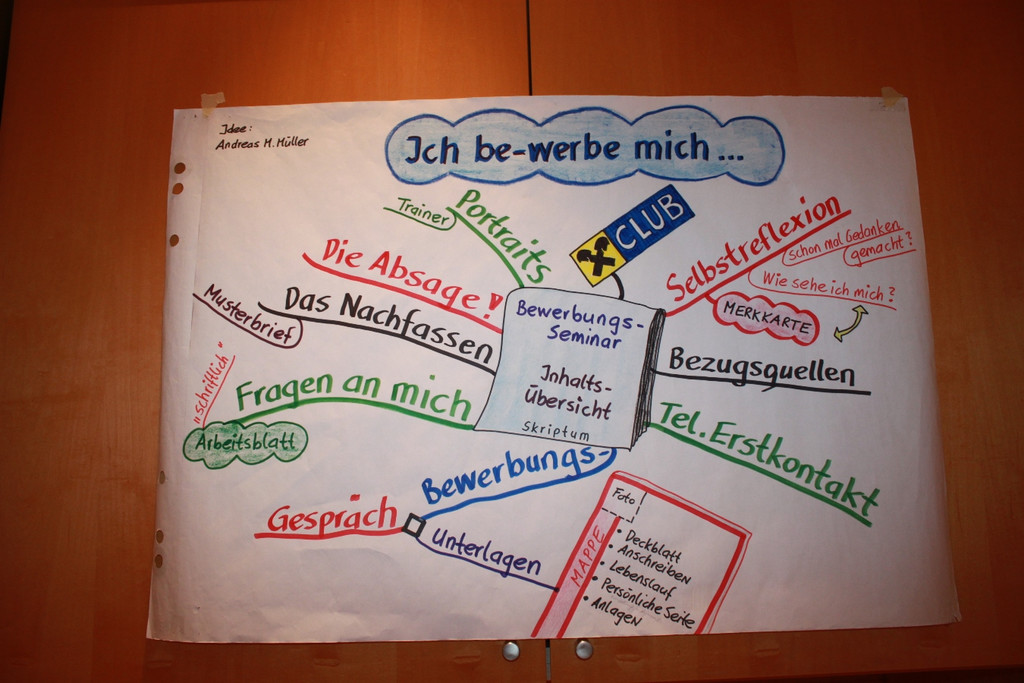 Idee:
Andreas M. Müller
Ich be-werbe mich...
CLUB
Bewerbungs-
Seminar
Inhalts-
Übersicht
Skriptum
Selbstreflexion
schon mal Gedanken
gemacht?
Wie sehe ich mich?
MERKKARTE
Bezugsquellen
Tel. Erstkontakt
Bewerbungs-
Unterlagen
MAPPE
Foto
• Deckblatt
• Anschreiben
• Lebenslauf
• Persönliche Seite
• Anlagen
Gespräch
Fragen an mich
"schriftlich"
Arbeitsblatt
Das Nachfassen
Musterbrief
Die Absage!
Portraits
Trainer